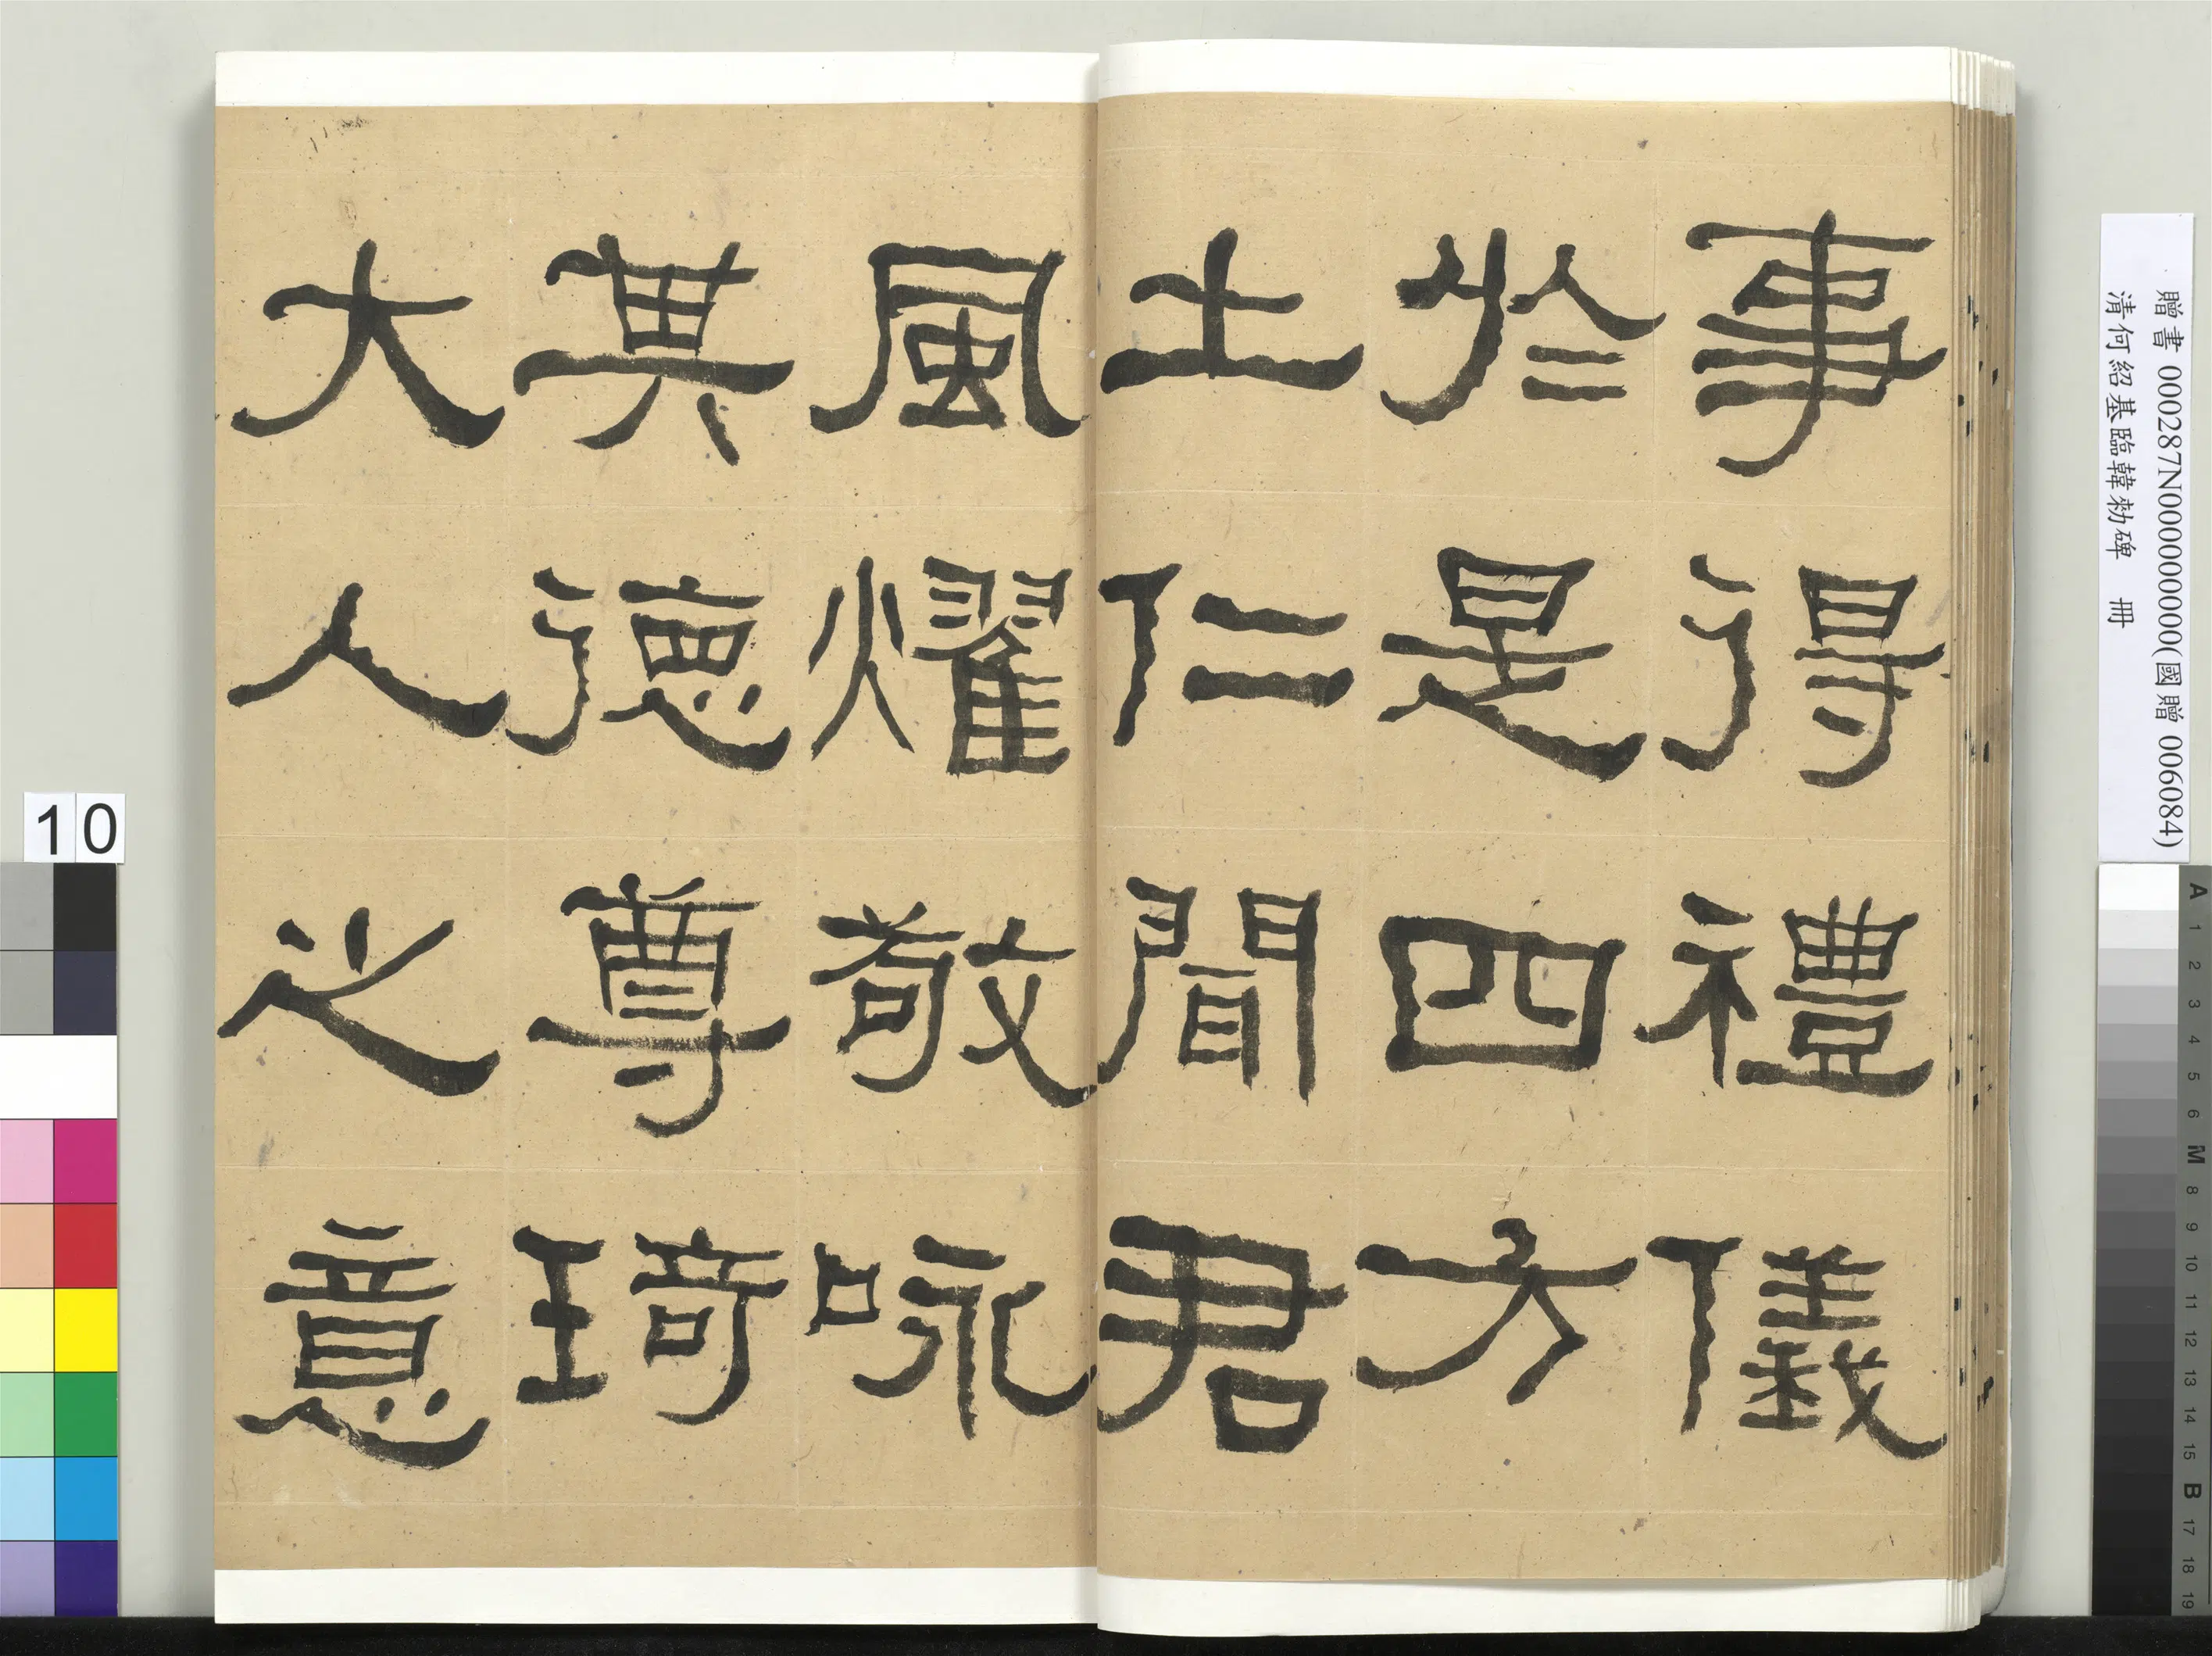 事得禮儀
於是四方
士仁聞君
風燿敬咏
其德尊琦
大人之意
贈書 000287N000000000(國贈 006084)
清何紹基臨韓勑碑 冊
10
A 1 2 3 4 5 6 M 8 9 10 11 12 13 14 15 B 17 18 19